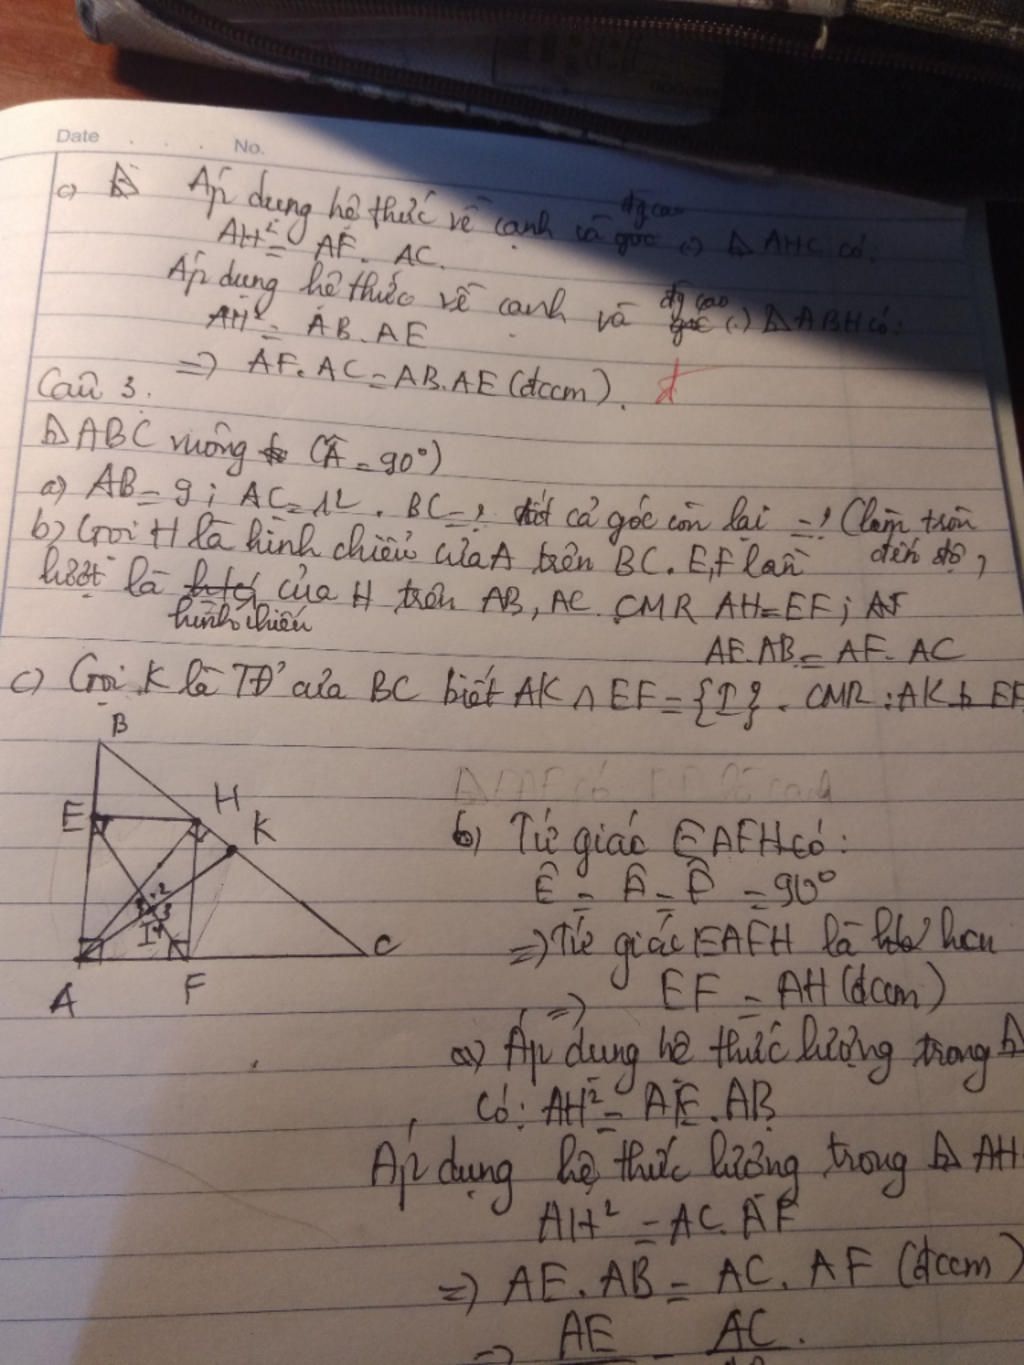 Date . . . . No.
c) Áp dụng hệ thức về cạnh và đg cao (.) ∆ AHC có:
AH² = AF. AC.
Áp dụng hệ thức về cạnh và đg cao (.) ∆ ABH có:
AH² = AB. AE
=> AF. AC = AB. AE (đccm).
Câu 3.
∆ ABC vuông (Â = 90°)
a) AB = 9; AC = 12. BC = ? tất cả góc còn lại = ? (làm tròn
đến độ,
b) Gọi H là hình chiếu của A trên BC. E, F lần
lượt là hình chiếu của H trên AB, AC. CMR AH = EF; AF
AE. AB = AF. AC
c) Gọi K là TĐ của BC biết AK ∩ EF = {I}. CMR: AK ⊥ EF
B
E
H
K
I
A
F
C
b) Tứ giác EAFH có:
Ê = Â = F̂ = 90°
=> Tứ giác EAFH là hcn
=> EF = AH (đccm)
a) Áp dụng hệ thức lượng trong ∆
có: AH² = AE. AB
Áp dụng hệ thức lượng trong ∆ AH
AH² = AC. AF
=> AE. AB = AC. AF (đccm)
=> AE = AC.